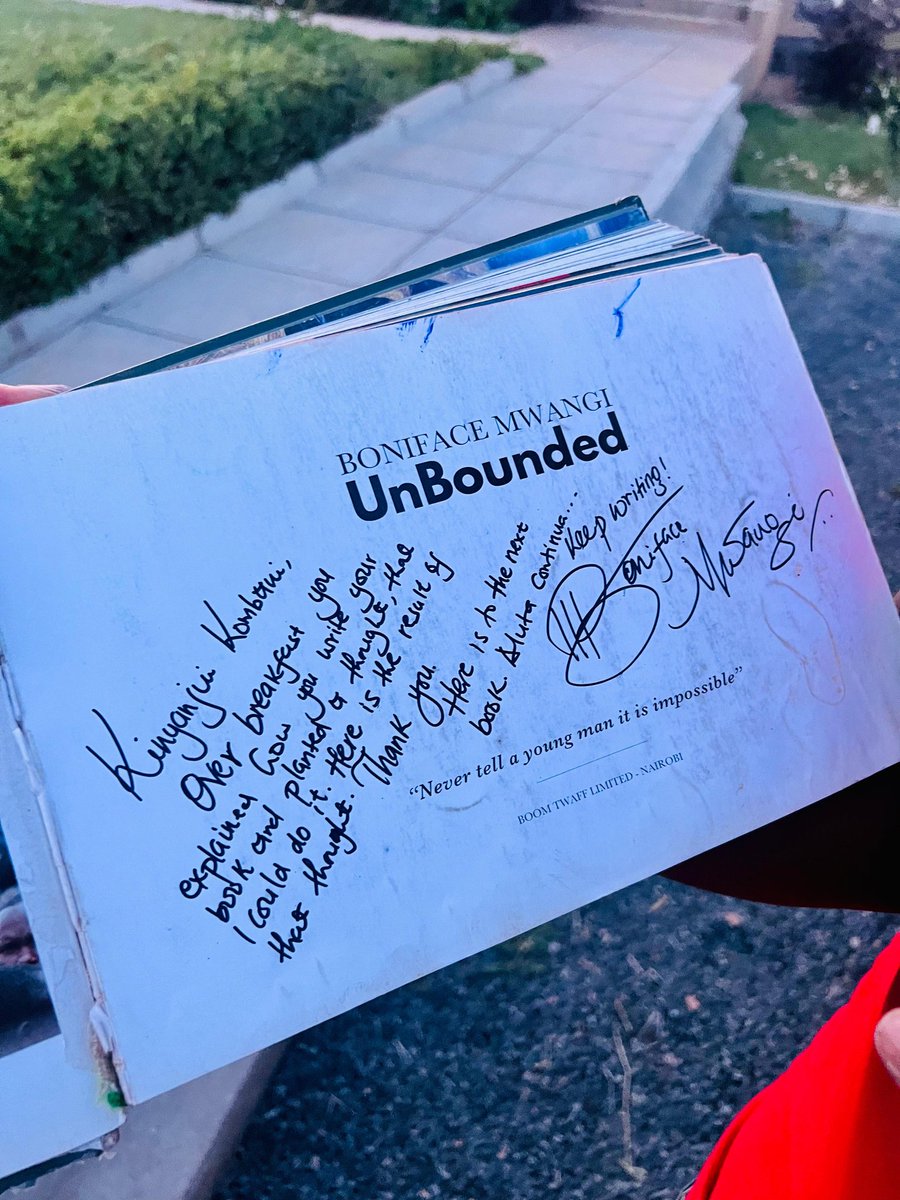 BONIFACE MWANGI
UnBounded
Kinyanjui Kombani,
Over breakfast you
explained how you write your
book and planted a thought, that
I could do it. Here is the result of
that thought. Thank you.
Here is to the next
book. Aluta continua...
Keep writing!
Boniface Mwangi
“Never tell a young man it is impossible”
BOOM TWAFF LIMITED - NAIROBI